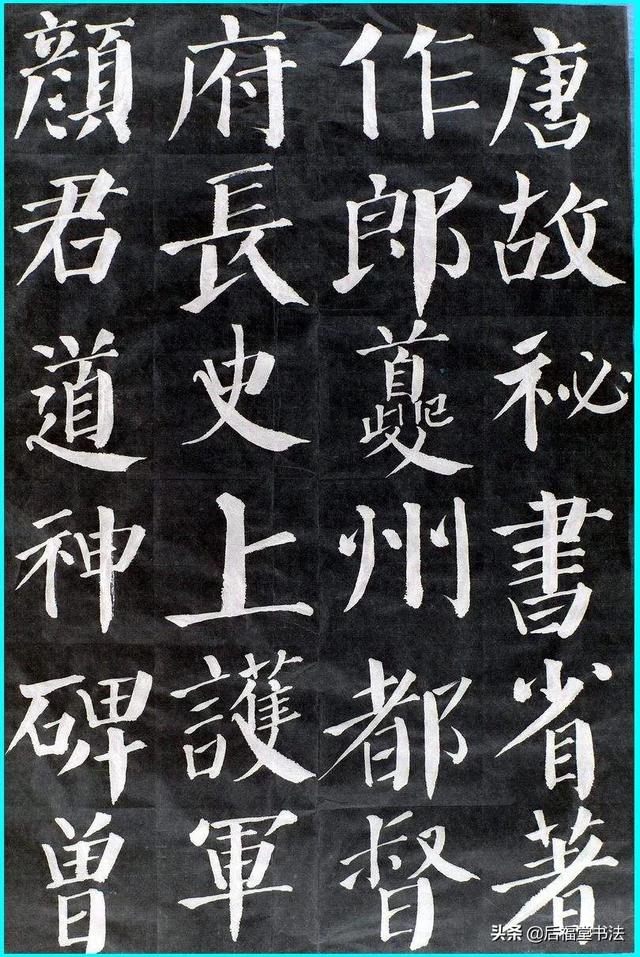 唐故祕書省著
作郎夔州都督
府長史上護軍
顏君道神碑曽
头条 @后福堂书法